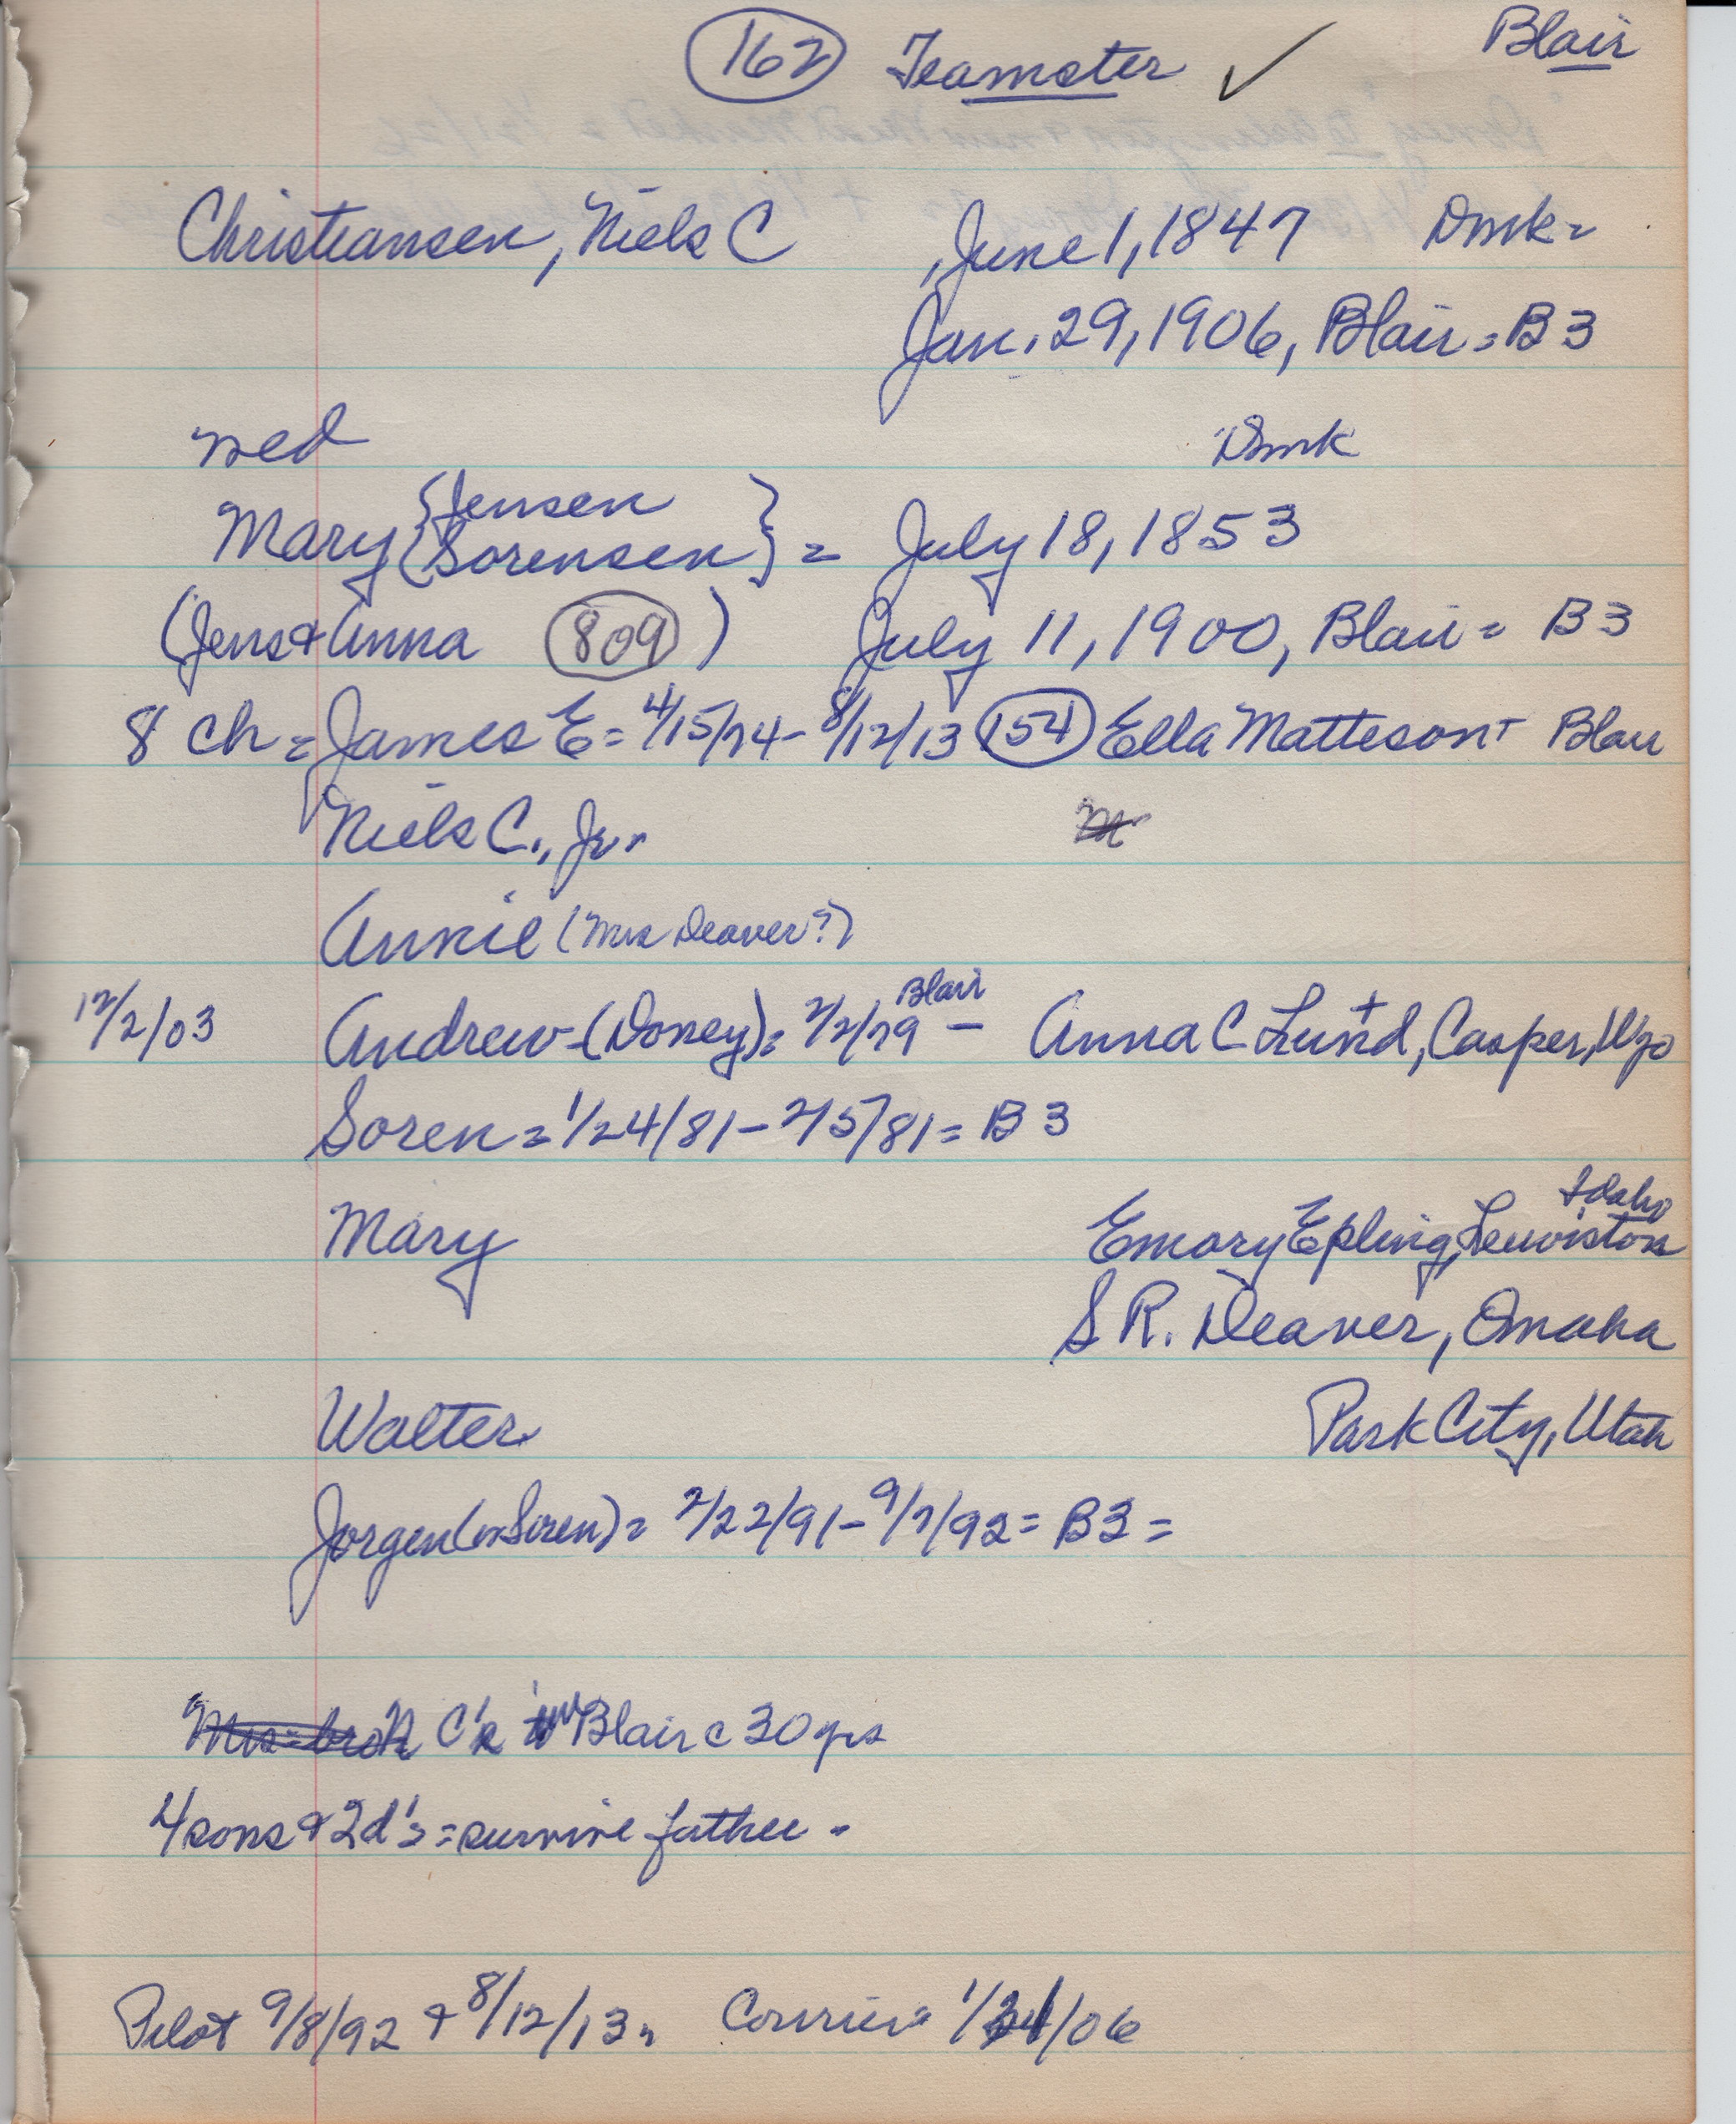 162 Teamster ✓ Blair
Christiansen, Niels C , June 1, 1847 Dmk =
Jan. 29, 1906, Blair = B3
med Dmk
Mary { Jensen
Sorensen } = July 18, 1853
(Jens + Anna 809 ) July 11, 1900, Blair = B3
8 ch = James E = 4/15/74 - 8/12/13 154 Ella Matteson + Blair
Niels C., Jr.
Annie (Mrs Deaver?)
Blair
12/2/03 Andrew - (Doney) = 2/2/79 - Anna C Lund, Casper, Wyo
Soren = 1/24/81 - 2/5/81 = B3
Idaho
Mary Emory Epling, Lewiston
S R. Deaver, Omaha
Walter Park City, Utah
Jorgen (or Soren) = 2/22/91 - 9/7/92 = B3 =
C's in Blair c 30 yrs
4 sons + 2 d's = survive father -
Pilot 9/8/92 + 8/12/13, Courier = 1/31/06